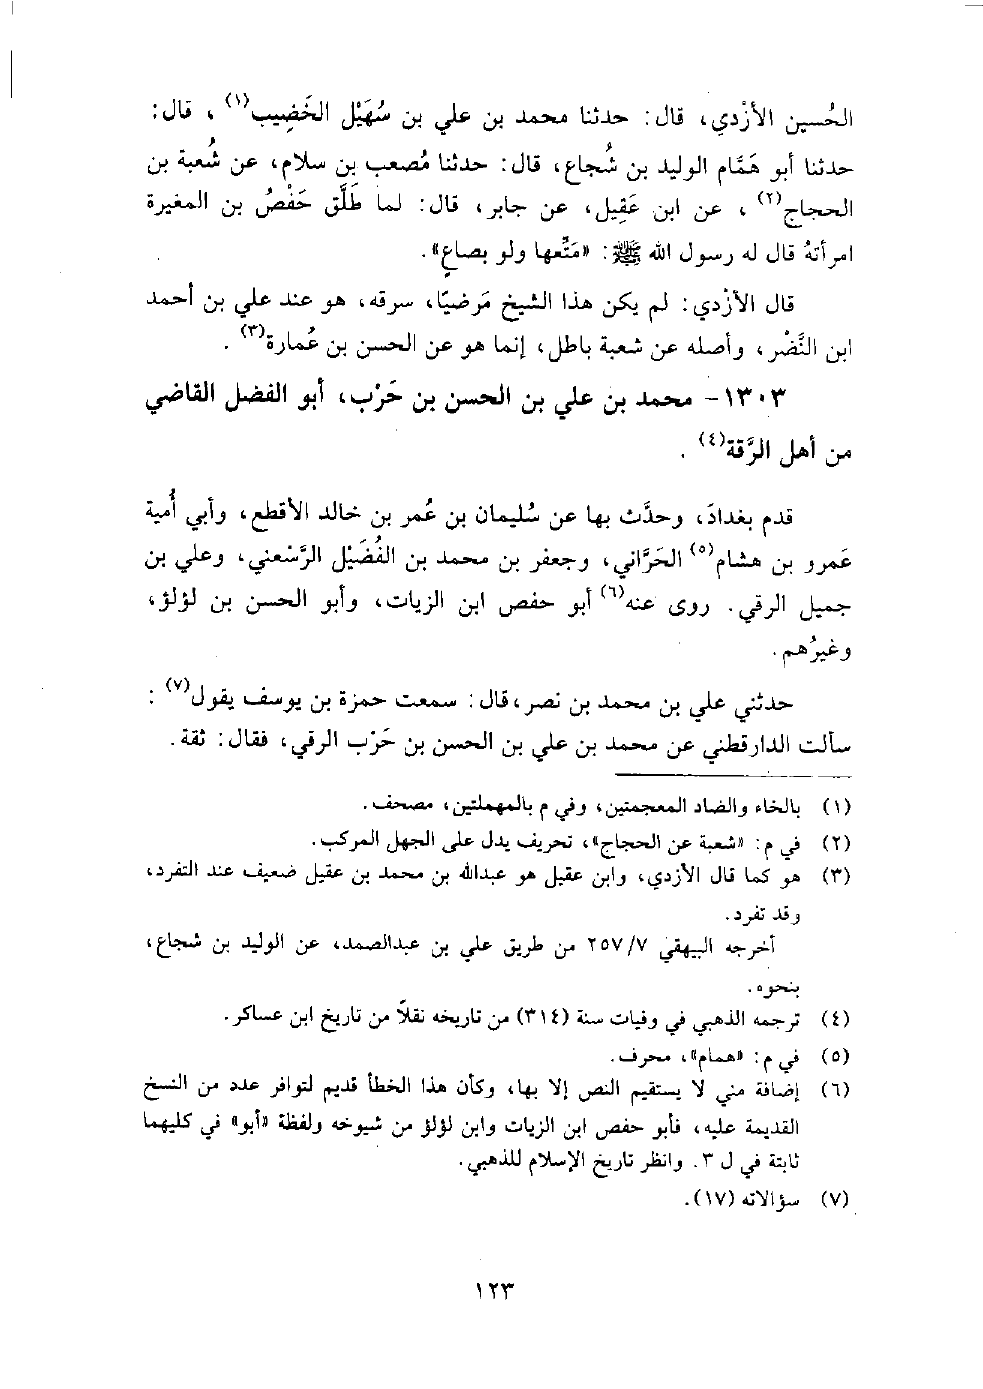 الحُسين الأزْدي، قال: حدثنا محمد بن علي بن سُهَيْل الخَضِيب(١)، قال:
حدثنا أبو هَمَّام الوليد بن شُجاع، قال: حدثنا مُصعب بن سلام، عن شُعبة بن
الحجاج(٢)، عن ابن عَقِيل، عن جابر، قال: لما طَلَّق حَفْصُ بن المغيرة
امرأتهُ قال له رسول الله ﷺ: «مَتِّعها ولو بصاعٍ».
قال الأزْدي: لم يكن هذا الشيخ مَرضيًا، سرقه، هو عند علي بن أحمد
ابن النَّضْر، وأصله عن شعبة باطل، إنما هو عن الحسن بن عُمارة(٣).
١٣٠٣- محمد بن علي بن الحسن بن حَرْب، أبو الفضل القاضي
من أهل الرَّقة(٤).
قدم بغدادَ، وحدَّث بها عن سُليمان بن عُمر بن خالد الأقطع، وأبي أُمية
عَمرو بن هشام(٥) الحَرَّاني، وجعفر بن محمد بن الفُضَيْل الرَّسْعني، وعلي بن
جميل الرقي. روى عنه(٦) أبو حفص ابن الزيات، وأبو الحسن بن لؤلؤ،
وغيرُهم.
حدثني علي بن محمد بن نصر، قال: سمعت حمزة بن يوسف يقول(٧):
سألت الدارقطني عن محمد بن علي بن الحسن بن حَرْب الرقي، فقال: ثقة.
(١) بالخاء والضاد المعجمتين، وفي م بالمهملتين، مصحف.
(٢) في م: «شعبة عن الحجاج»، تحريف يدل على الجهل المركب.
(٣) هو كما قال الأزدي، وابن عقيل هو عبدالله بن محمد بن عقيل ضعيف عند التفرد،
وقد تفرد.
أخرجه البيهقي ٧/ ٢٥٧ من طريق علي بن عبدالصمد، عن الوليد بن شجاع،
بنحوه.
(٤) ترجمه الذهبي في وفيات سنة (٣١٤) من تاريخه نقلاً من تاريخ ابن عساكر.
(٥) في م: «همام»، محرف.
(٦) إضافة مني لا يستقيم النص إلا بها، وكأن هذا الخطأ قديم لتوافر عدد من النسخ
القديمة عليه، فأبو حفص ابن الزيات وابن لؤلؤ من شيوخه ولفظة «أبو» في كليهما
ثابتة في ل ٣. وانظر تاريخ الإسلام للذهبي.
(٧) سؤالاته (١٧).
١٢٣